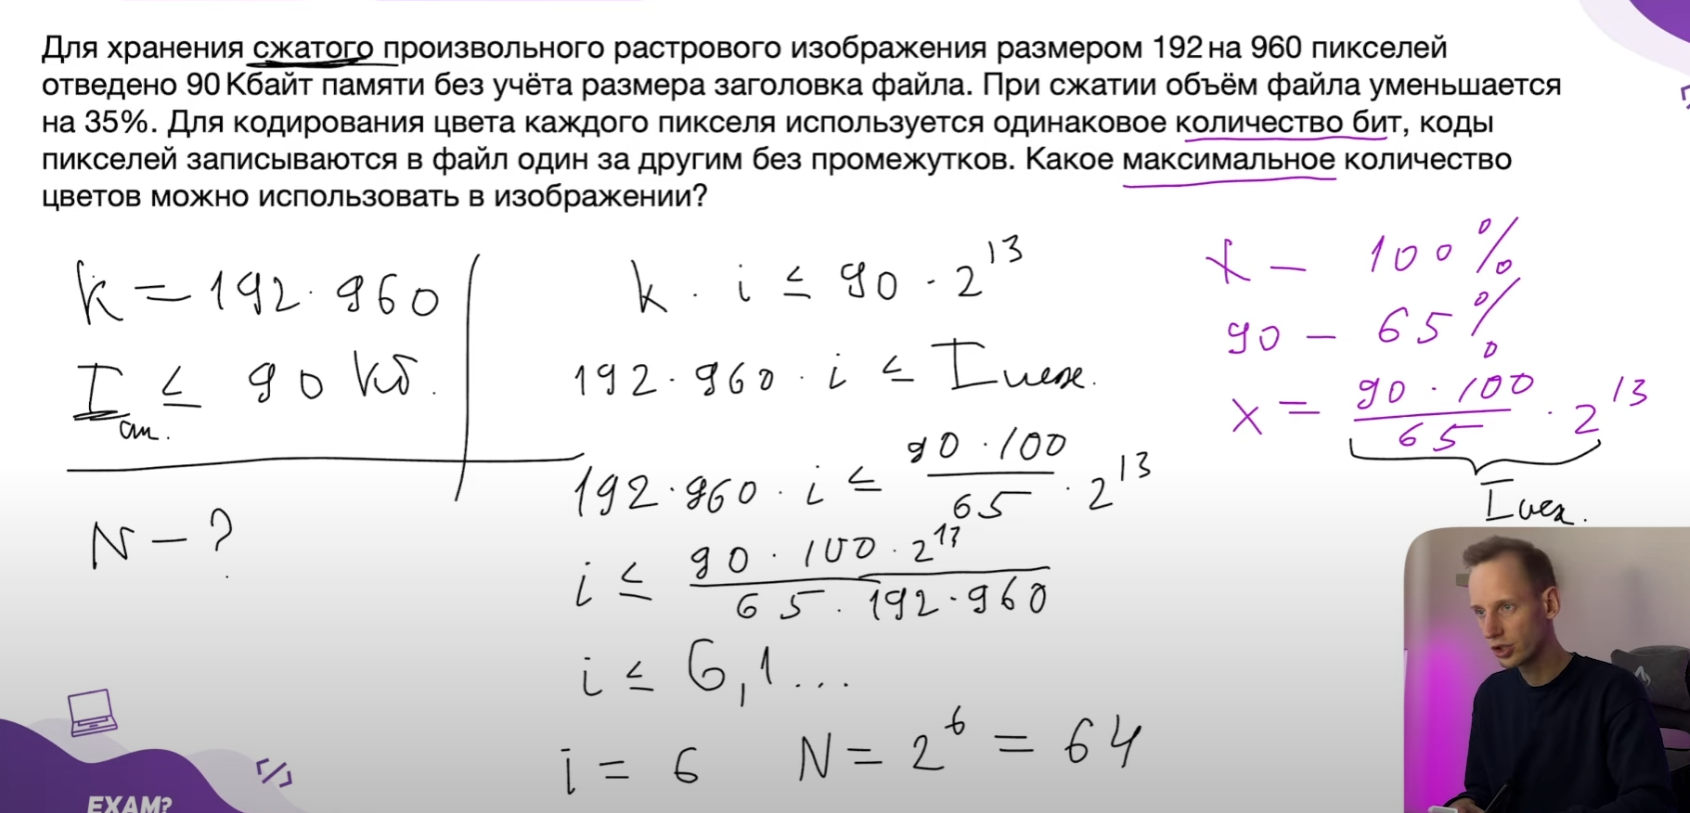 Для хранения сжатого произвольного растрового изображения размером 192 на 960 пикселей
отведено 90 Кбайт памяти без учёта размера заголовка файла. При сжатии объём файла уменьшается
на 35%. Для кодирования цвета каждого пикселя используется одинаковое количество бит, коды
пикселей записываются в файл один за другим без промежутков. Какое максимальное количество
цветов можно использовать в изображении?
k = 192 · 960
I сж. ≤ 90 Кб.
N - ?
k · i ≤ 90 · 2^13
192 · 960 · i ≤ I исх.
192 · 960 · i ≤ 90 · 100 / 65 · 2^13
i ≤ 90 · 100 · 2^13 / 65 · 192 · 960
i ≤ 6,1...
i = 6 N = 2^6 = 64
x - 100%
90 - 65%
x = 90 · 100 / 65 · 2^13
I исх.
EXAM?